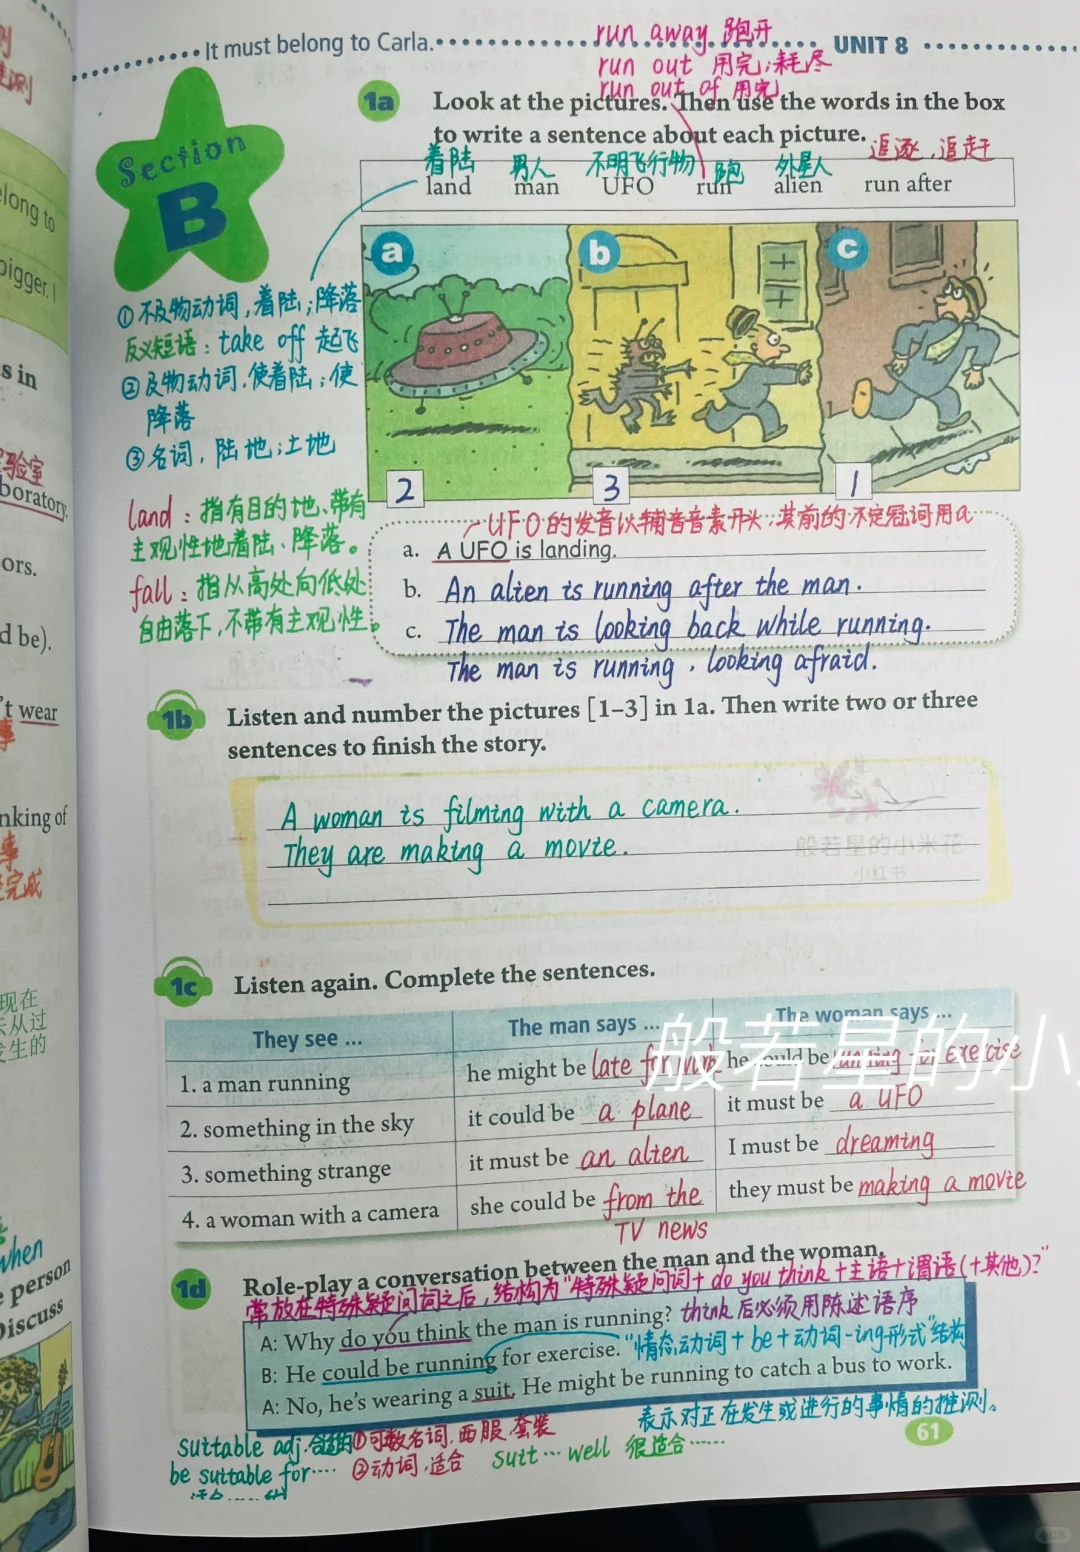 It must belong to Carla.
run away 跑开
UNIT 8
run out 用完;耗尽
run out of 用完
Section
B
1a Look at the pictures. Then use the words in the box
to write a sentence about each picture.
着陆 男人 不明飞行物 跑 外星人 追逐,追赶
land man UFO run alien run after
①不及物动词,着陆;降落
反义短语:take off 起飞
②及物动词.使着陆;使
降落
③名词,陆地;土地
land:指有目的地、带有
主观性地着陆、降落。
fall:指从高处向低处
自由落下,不带有主观性。
a b c
2 3 1
UFO的发音以辅音音素开头,其前的不定冠词用a
a. A UFO is landing.
b. An alien is running after the man.
c. The man is looking back while running.
The man is running, looking afraid.
1b Listen and number the pictures [1–3] in 1a. Then write two or three
sentences to finish the story.
A woman is filming with a camera.
They are making a movie.
般若星的小米花
小红书
1c Listen again. Complete the sentences.
They see ... The man says ... The woman says ...
1. a man running he might be late for work he could be running for exercise
2. something in the sky it could be a plane it must be a UFO
3. something strange it must be an alien I must be dreaming
4. a woman with a camera she could be from the TV news they must be making a movie
般若星的小
1d Role-play a conversation between the man and the woman.
常放在特殊疑问词之后,结构为"特殊疑问词+do you think+主语+谓语(+其他)?"
A: Why do you think the man is running? think后必须用陈述语序
B: He could be running for exercise. "情态动词+be+动词-ing形式"结构
A: No, he's wearing a suit. He might be running to catch a bus to work.
表示对正在发生或进行的事情的推测。
61
suitable adj.合适的 ①可数名词.西服.套装
be suitable for…… ②动词.适合 suit … well 很适合……
elong to
bigger. I
s in
实验室
boratory.
ors.
d be).
't wear
事
nking of
事
完成
现在
从过
发生的
when
e person
Discuss